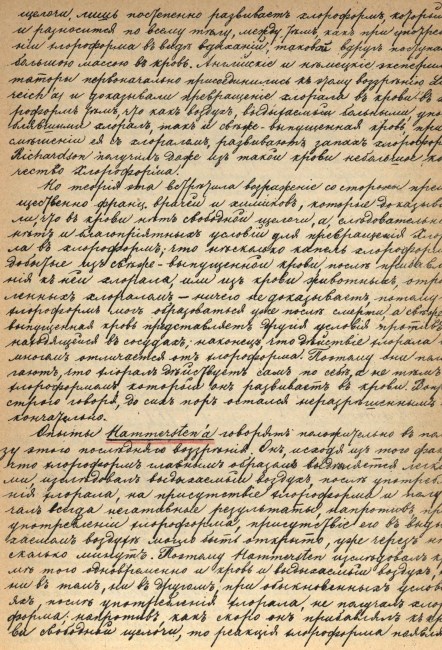 щелочи, лишь постепенно развиваетъ хлороформъ, который
и разносится по всему тѣлу, между тѣмъ, какъ при употребле
нiи хлороформа въ видѣ вдыханiй, таковой вдругъ поступа
большою массою въ кровь. Англiйскiе и нѣмецкiе эксперим
таторы первоначально присоединились къ этому воззрѣнiю Li
reich'a и доказывали превращенiе хлорала въ крови въ
роформъ тѣмъ, что какъ воздухъ, выдыхаемый больными упо
блявшими хлоралъ, такъ и свѣже-выпущенная кровь, при
смѣшенiи ея съ хлораломъ, развиваютъ запахъ хлорофор
Richardson получилъ даже изъ такой крови небольшое ко
чество хлороформа.
Но теорiя эта встрѣтила возраженiе со стороны преи
щественно франц. врачей и химиковъ, которые доказыва
ли, что въ крови нѣтъ свободной щелочи, а, слѣдовательно
нѣтъ и благопрiятныхъ условiй для превращенiя хлор
ла въ хлороформъ; что нѣсколько капель хлороформ
добытые изъ свѣже-выпущенной крови, послѣ прибавле
нiя къ ней хлорала, или изъ крови животныхъ, отра
вленныхъ хлораломъ – ничего не доказываетъ, потому
хлороформъ могъ образоваться уже послѣ смерти, а свѣже
выпущенная кровь представляетъ другiя условiя противъ
находящейся въ сосудахъ; наконецъ, что дѣйствiе хлорала
многимъ отличается отъ хлороформа. Поэтому они пола
гаютъ, что хлоралъ дѣйствуетъ самъ по себѣ, а не тѣмъ
хлороформомъ, который онъ развиваетъ въ крови. Вопр
строго говоря, до сихъ поръ остался неразрѣшеннымъ
кончательно.
Опыты Hammersten'a говорятъ положительно въ пол
зу этого послѣдняго воззрѣнiя. Онъ, исходя изъ того фак
что хлороформъ главнымъ образомъ выдѣляется легк
ми изслѣдовалъ выдыхаемый воздухъ, послѣ употребле
нiя хлорала, на присутствiе хлороформа и полу
чалъ всегда негативные результаты, напротивъ при
употребленiи хлороформа, присутствiе его въ выды
хаемомъ воздухѣ могло быть открыто, уже черезъ нѣ
сколько минутъ. Поэтому Hammersten изслѣдовалъ кро
мѣ того одновременно и кровь и выдыхаемый воздухъ,
ни въ томъ, ни въ другомъ, при обыкновенныхъ услов
яхъ, послѣ употребленiя хлорала, не получалъ хло
форма; напротивъ, какъ скоро онъ прибавлялъ къ кро
ви свободной щелочи, то реакцiя хлороформа появля